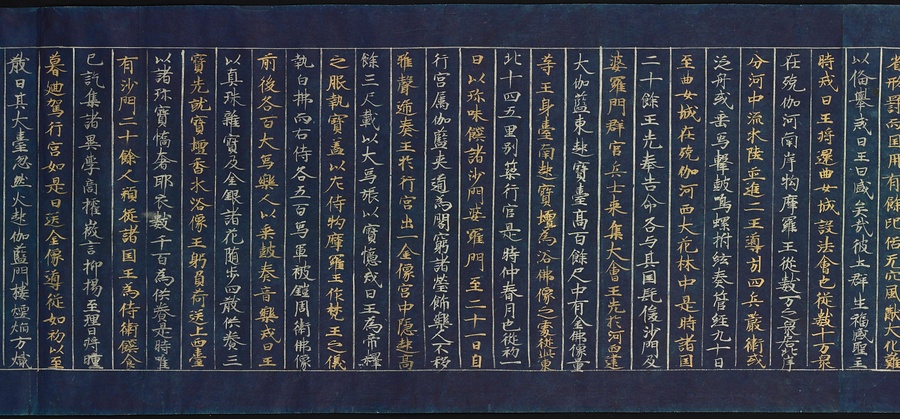 省形罰而国用有餘氓俗无究風猷大化難
以俻舉戒日王曰盛矣哉彼土群生福感聖主
時戒日王將還曲女城設法會也從數十万眾
在殑伽河南岸拘摩羅王從數万之眾居北岸
分河中流水陸並進二王導引四兵嚴衛或
泛舟或乗馬擊皷鳴螺拊絃奏管經九十日
至曲女城在殑伽河西大花林中是時諸国
二十餘王先奉告命各与其国髦俊沙門及
婆羅門群官兵士来集大會王先於河西建
大伽藍東起寶臺高百餘尺中有金佛像量
等王身臺南起寶壇為浴佛像之處從此東
北十四五里别築行宮是時仲春月也從初一
日以珎味饌諸沙門婆羅門至二十一日自
行宮属伽藍夾道為閣窮諸瑩餝樂人不移
雅聲逓奏王於行宮出一金像宮中隠起高
餘三尺載以大馬張以寶幰戒日王為帝釋
之服執寶盖以左侍拘摩羅王作梵王之儀
執白拂而右侍各五百馬軍被鎧周衛佛像
前後各百大馬樂人以乗皷奏音樂戒日王
以真珠雜寶及金銀諸花随歩四散供養三
寶先就寶壇香水浴像王躬負荷送上西臺
以諸珎寶憍奢耶衣數千百為供養是時唯
有沙門二十餘人預從諸国王為侍衛饌食
已訖集諸異學商㩁微言抑揚至理日將曛
暮廻駕行宮如是日送金像導從如初以至
散日其大臺忽然火起伽藍門樓煙焰方熾